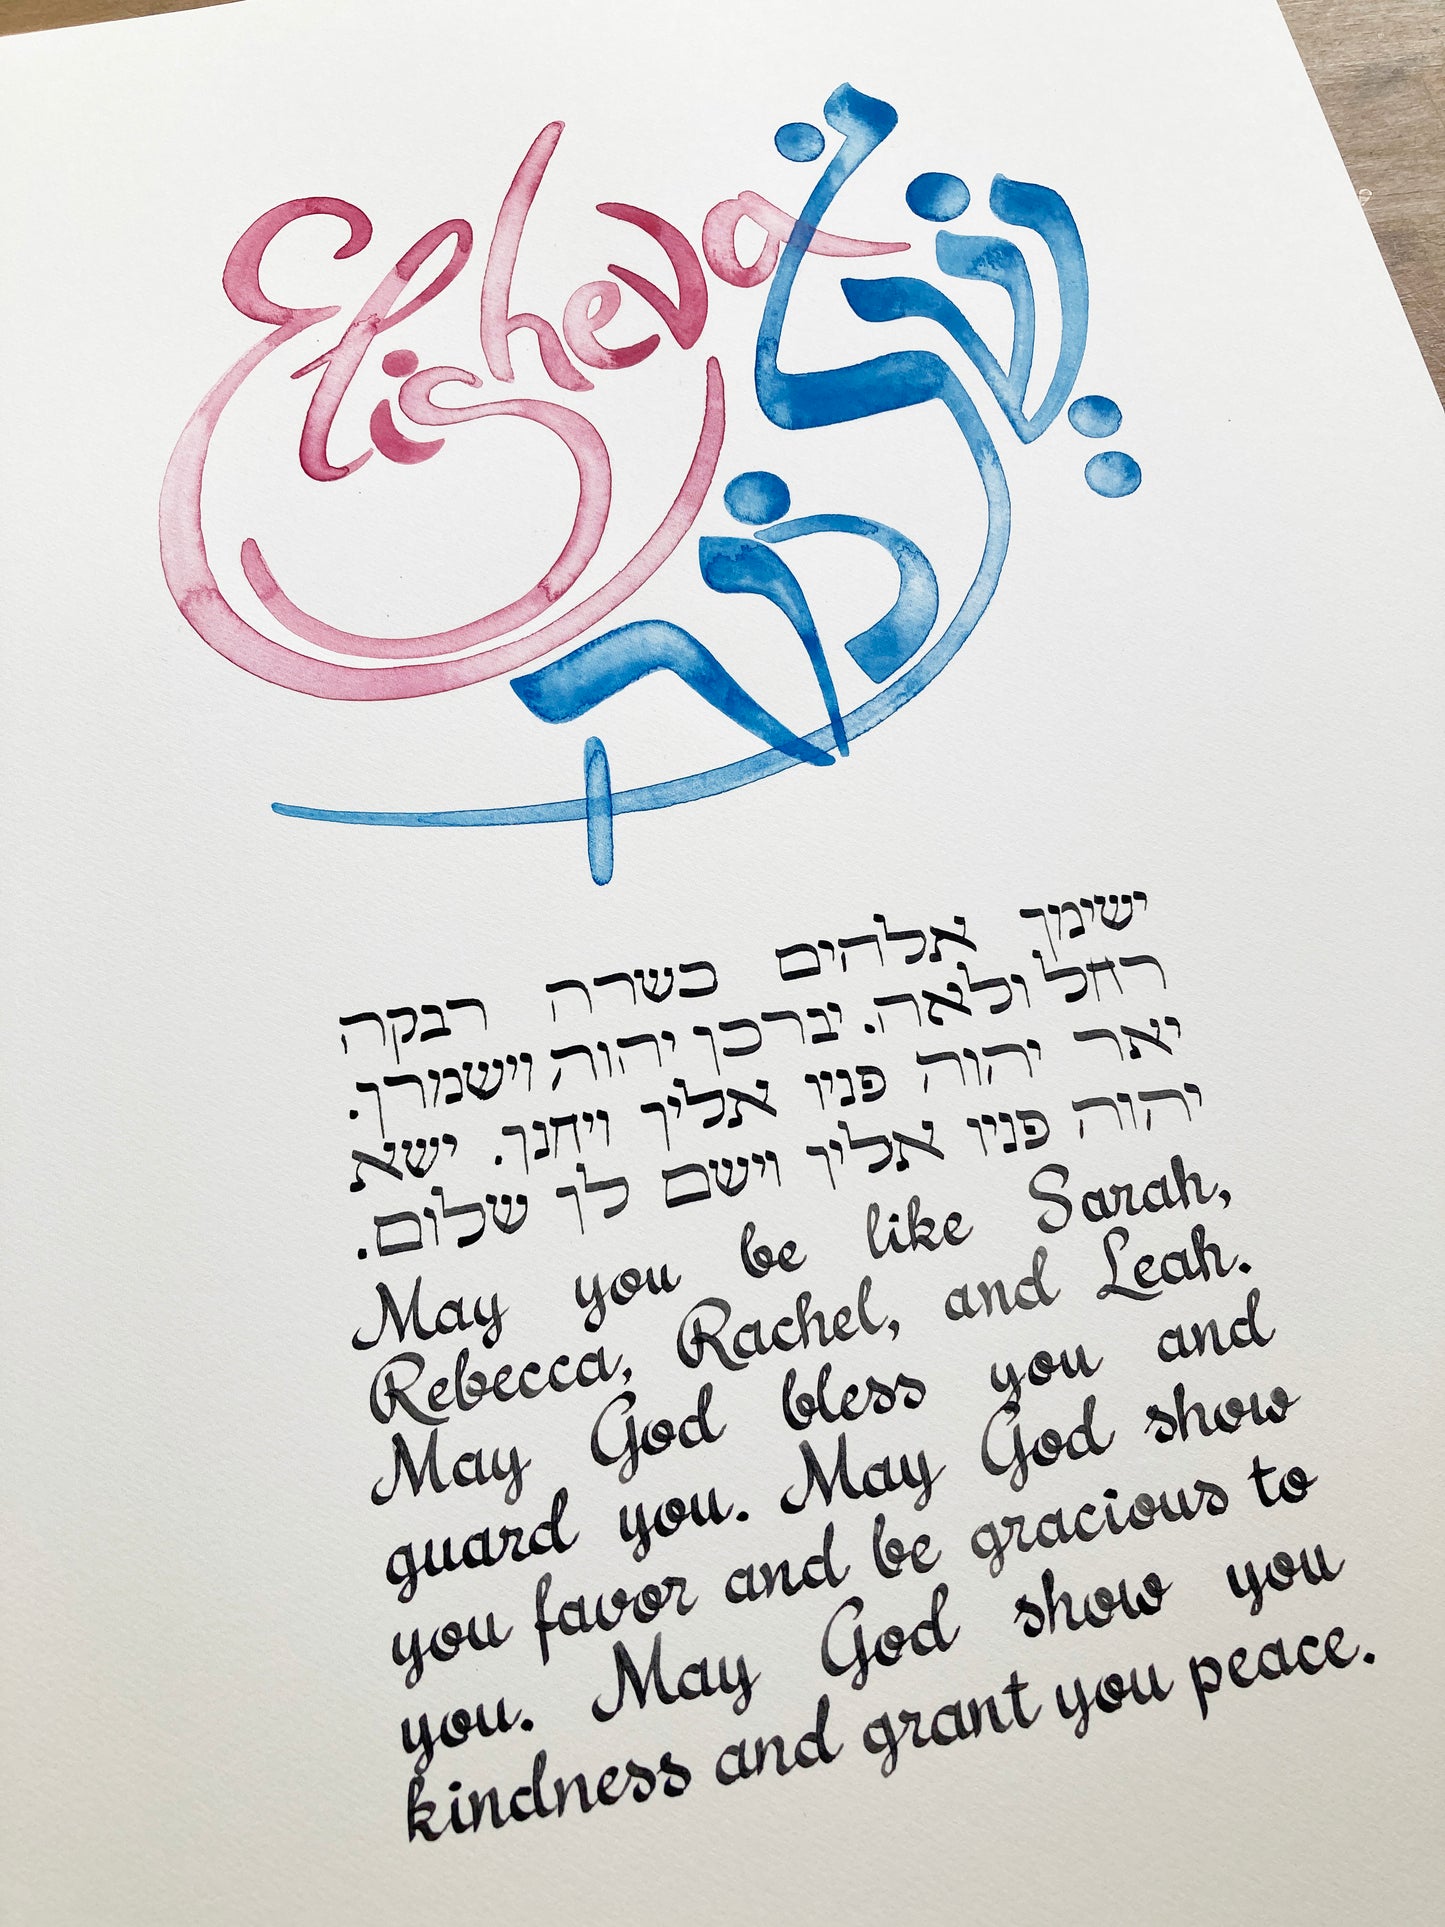 Elisheva
שְׁלֹמֹה
ישימך אלהים כשרה רבקה
רחל ולאה. יברכן יהוה וישמרך.
יאר יהוה פניו אליך ויחנך. ישא
יהוה פניו אליך וישם לך שלום.
May you be like Sarah,
Rebecca, Rachel, and Leah.
May God bless you and
guard you. May God show
you favor and be gracious to
you. May God show you
kindness and grant you peace.